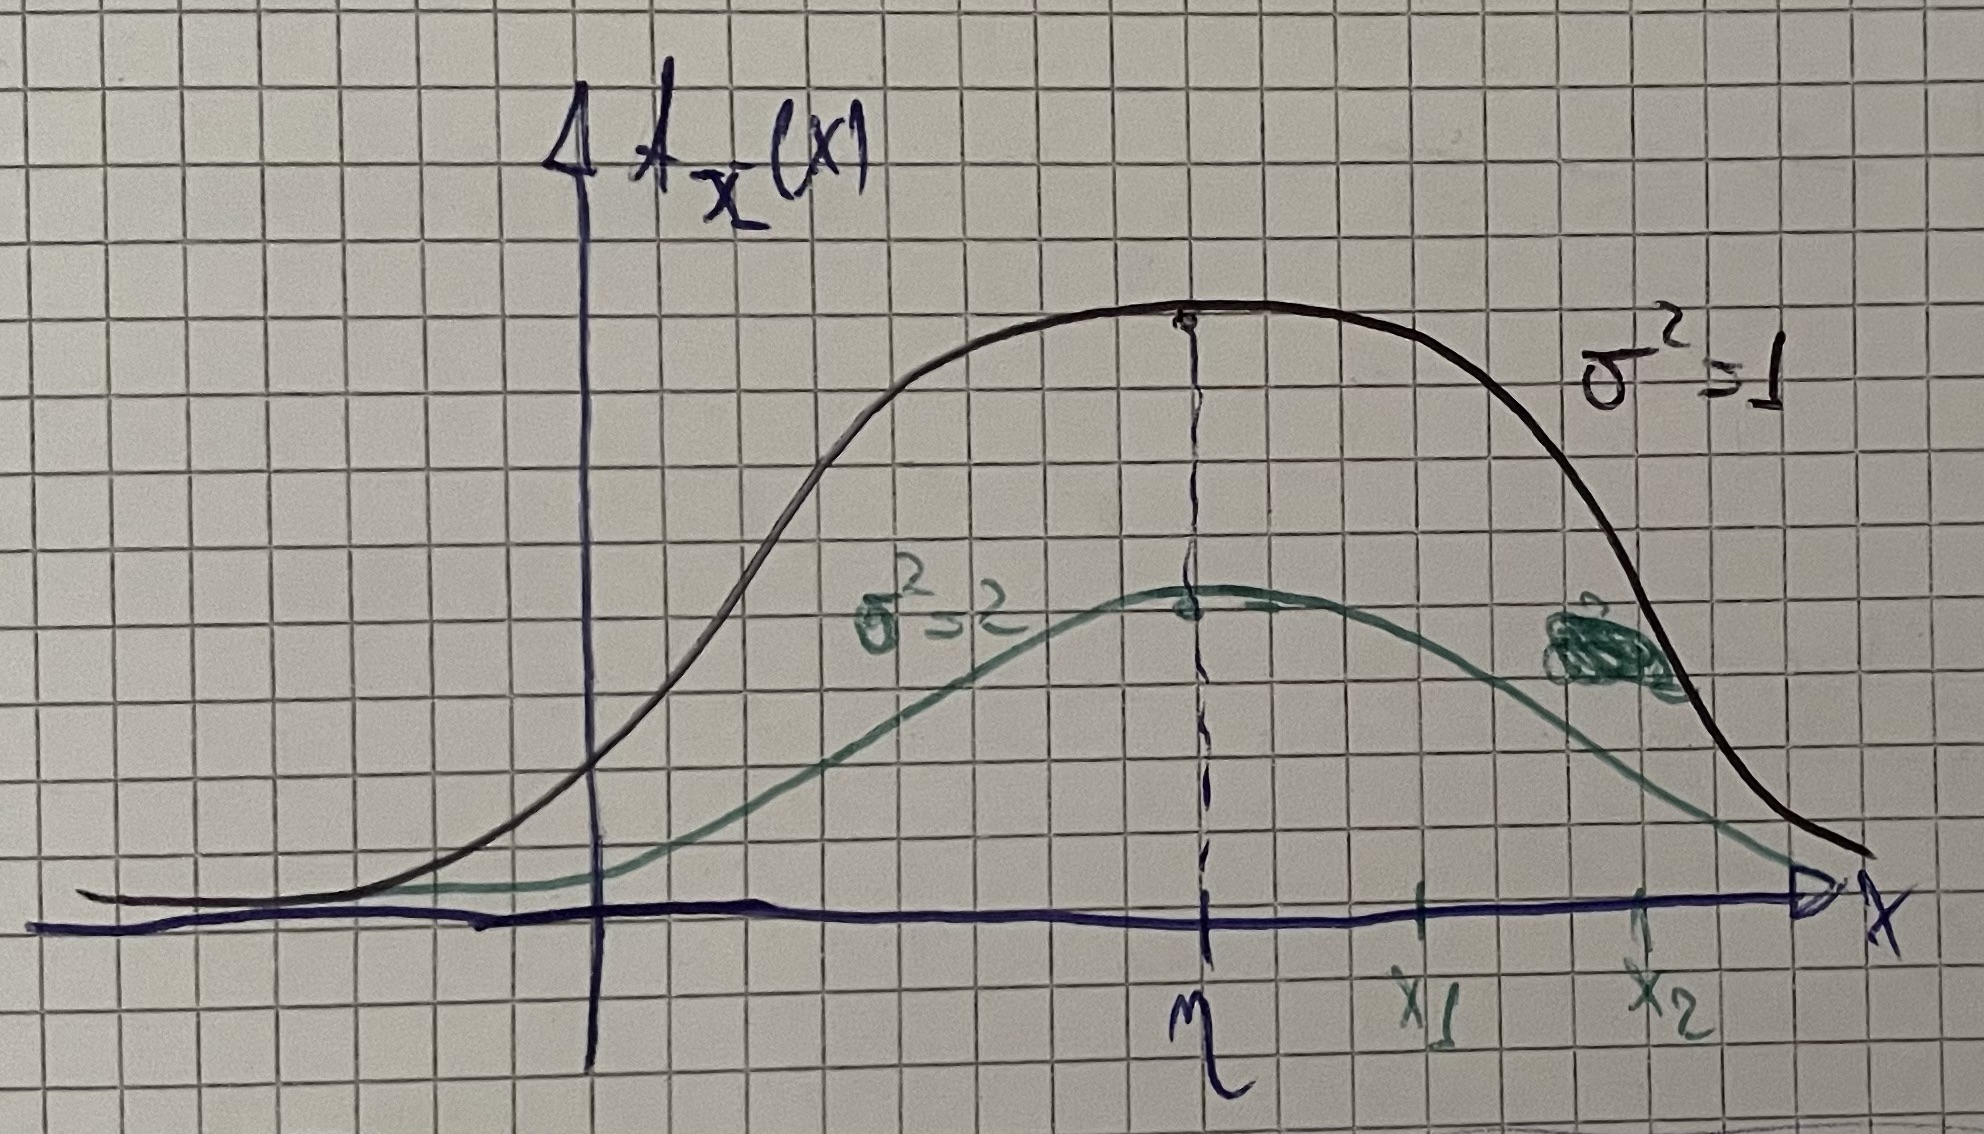 f_x(x)
σ²=1
σ²=2
x
η
x₁
x₂